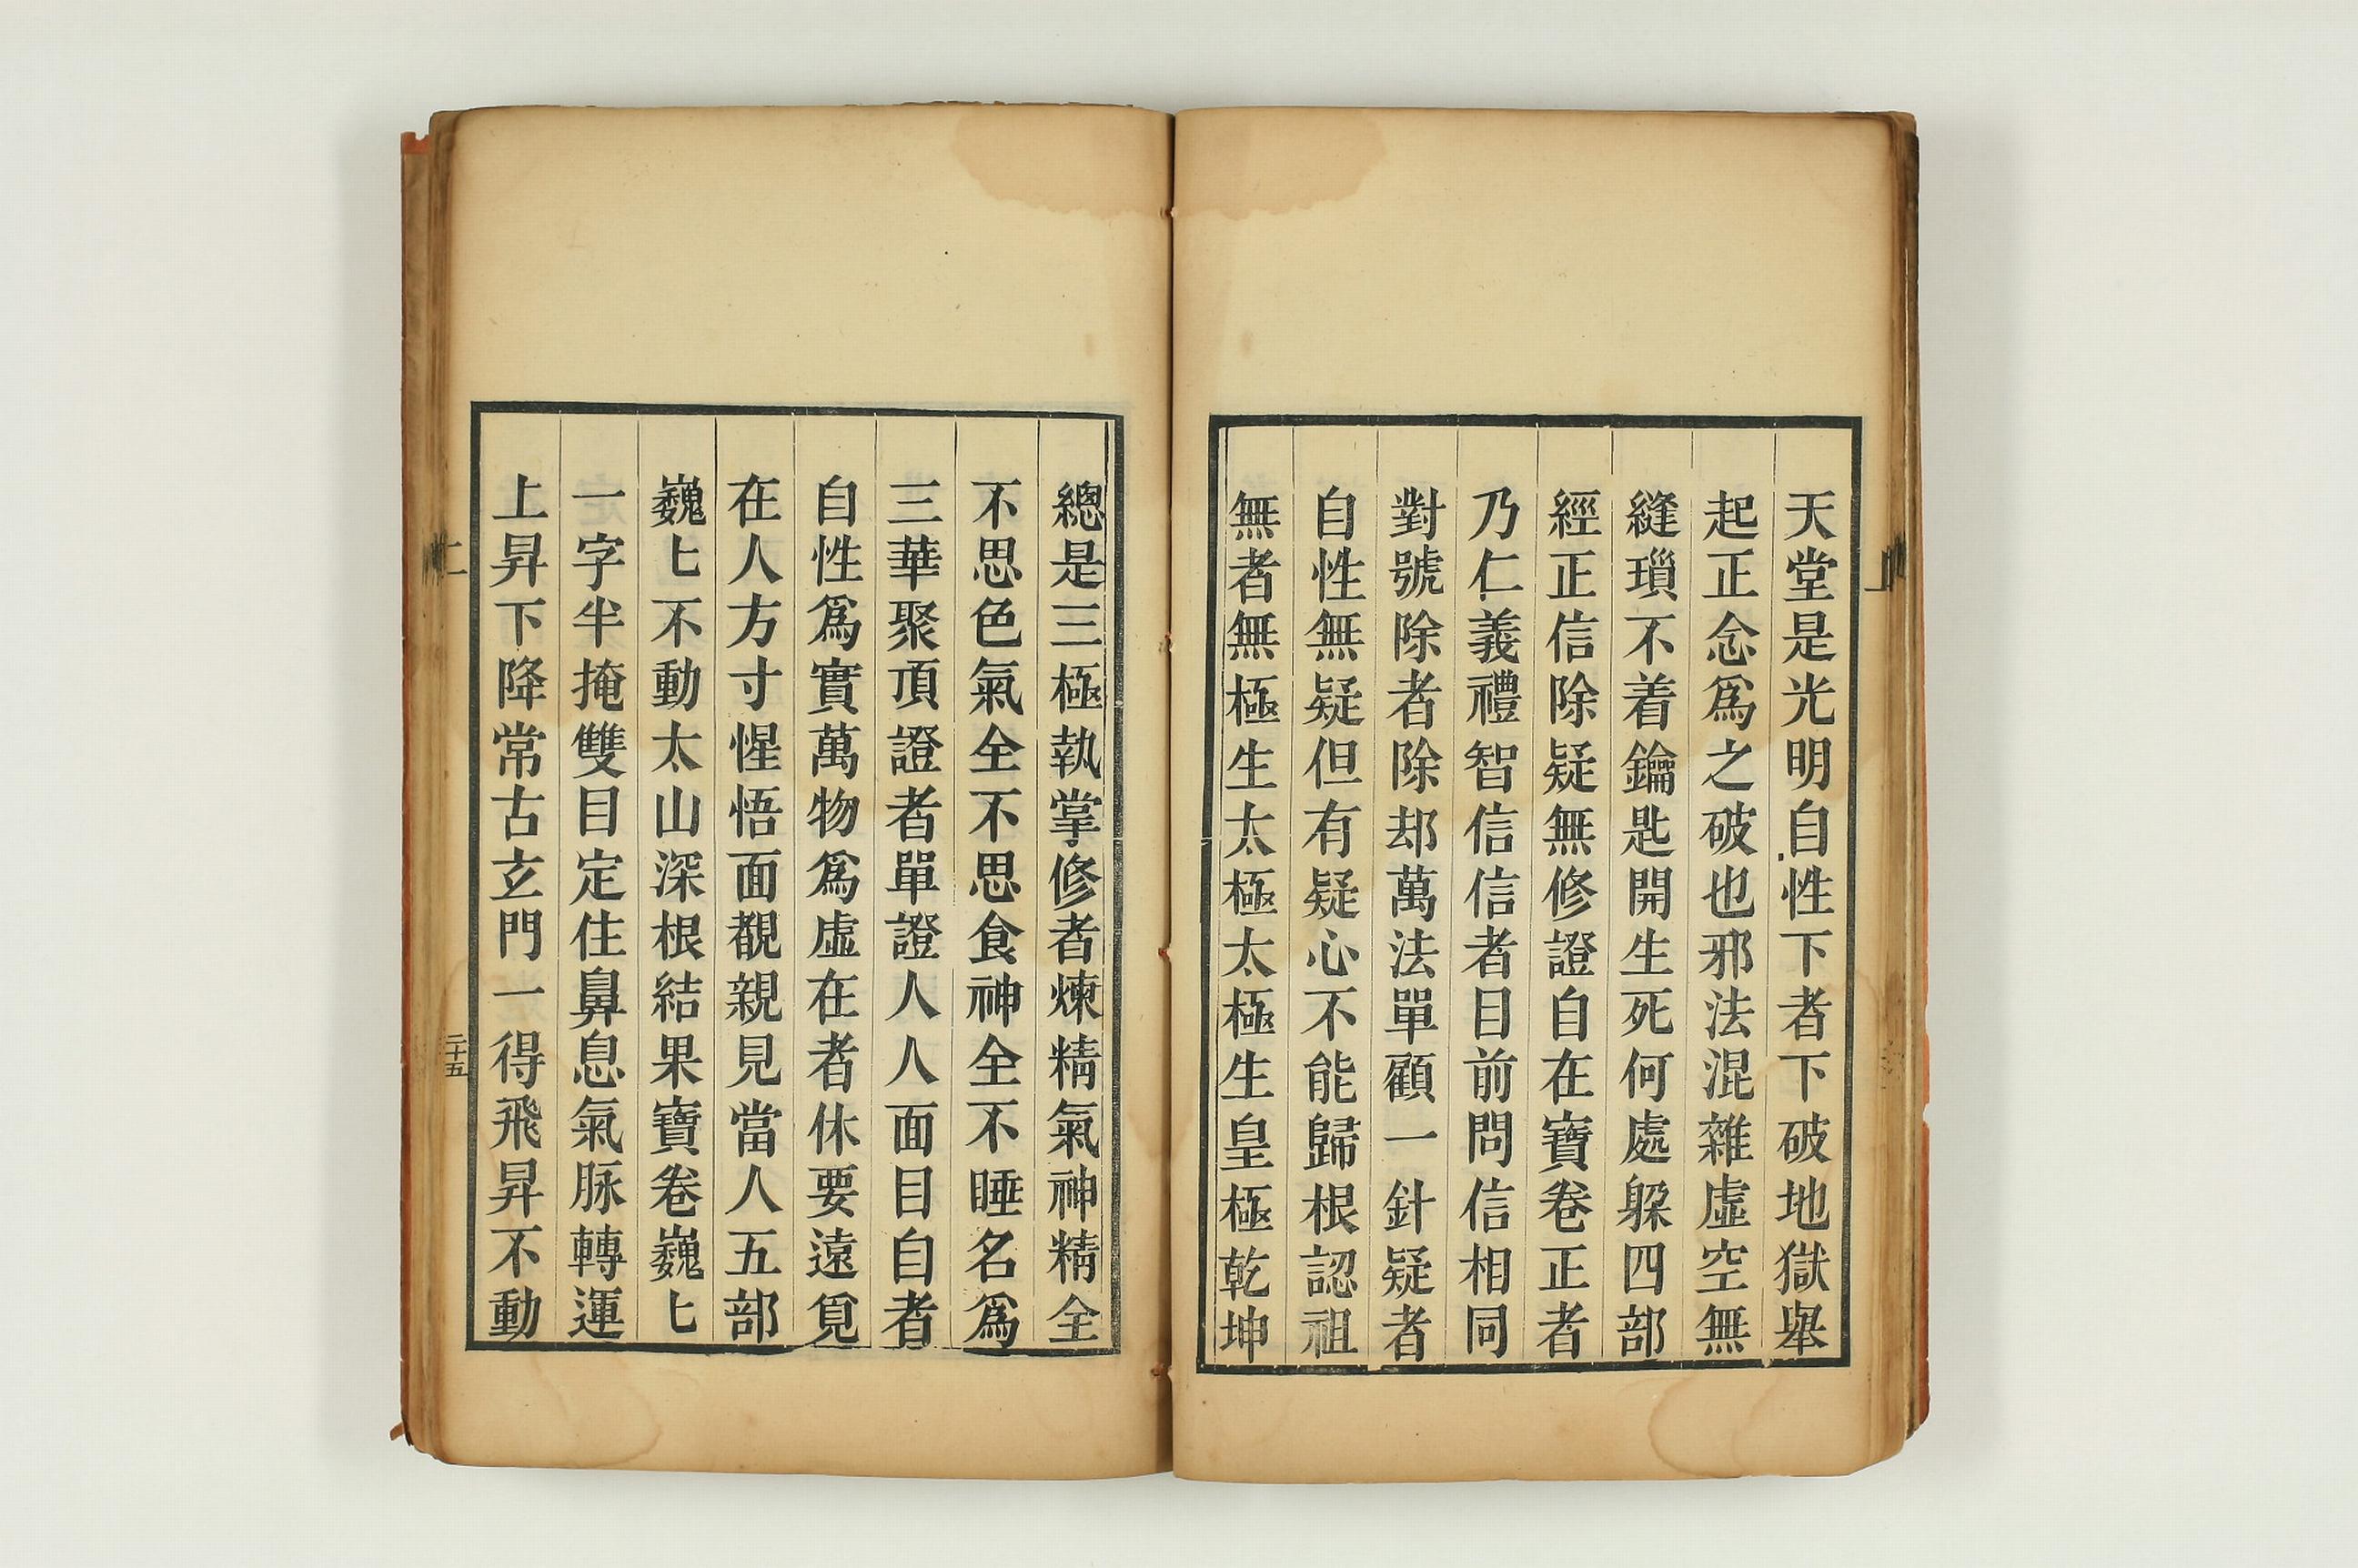 天堂是光明自性下者下破地獄舉
起正念爲之破也邪法混雜虛空無
縫瑣不着鑰匙開生死何處躱四部
經正信除疑無修證自在寶卷正者
乃仁義禮智信信者目前問信相同
對號除者除却萬法單顧一針疑者
自性無疑但有疑心不能歸根認祖
無者無極生太極太極生皇極乾坤
總是三極執掌修者煉精氣神精全
不思色氣全不思食神全不睡名爲
三華聚頂證者單證人人面目自者
自性爲實萬物爲虛在者休要遠覓
在人方寸惺悟面覩親見當人五部
巍〻不動太山深根結果寶卷巍〻
一字半掩雙目定住鼻息氣脉轉運
上昇下降常古玄門一得飛昇不動
二十五